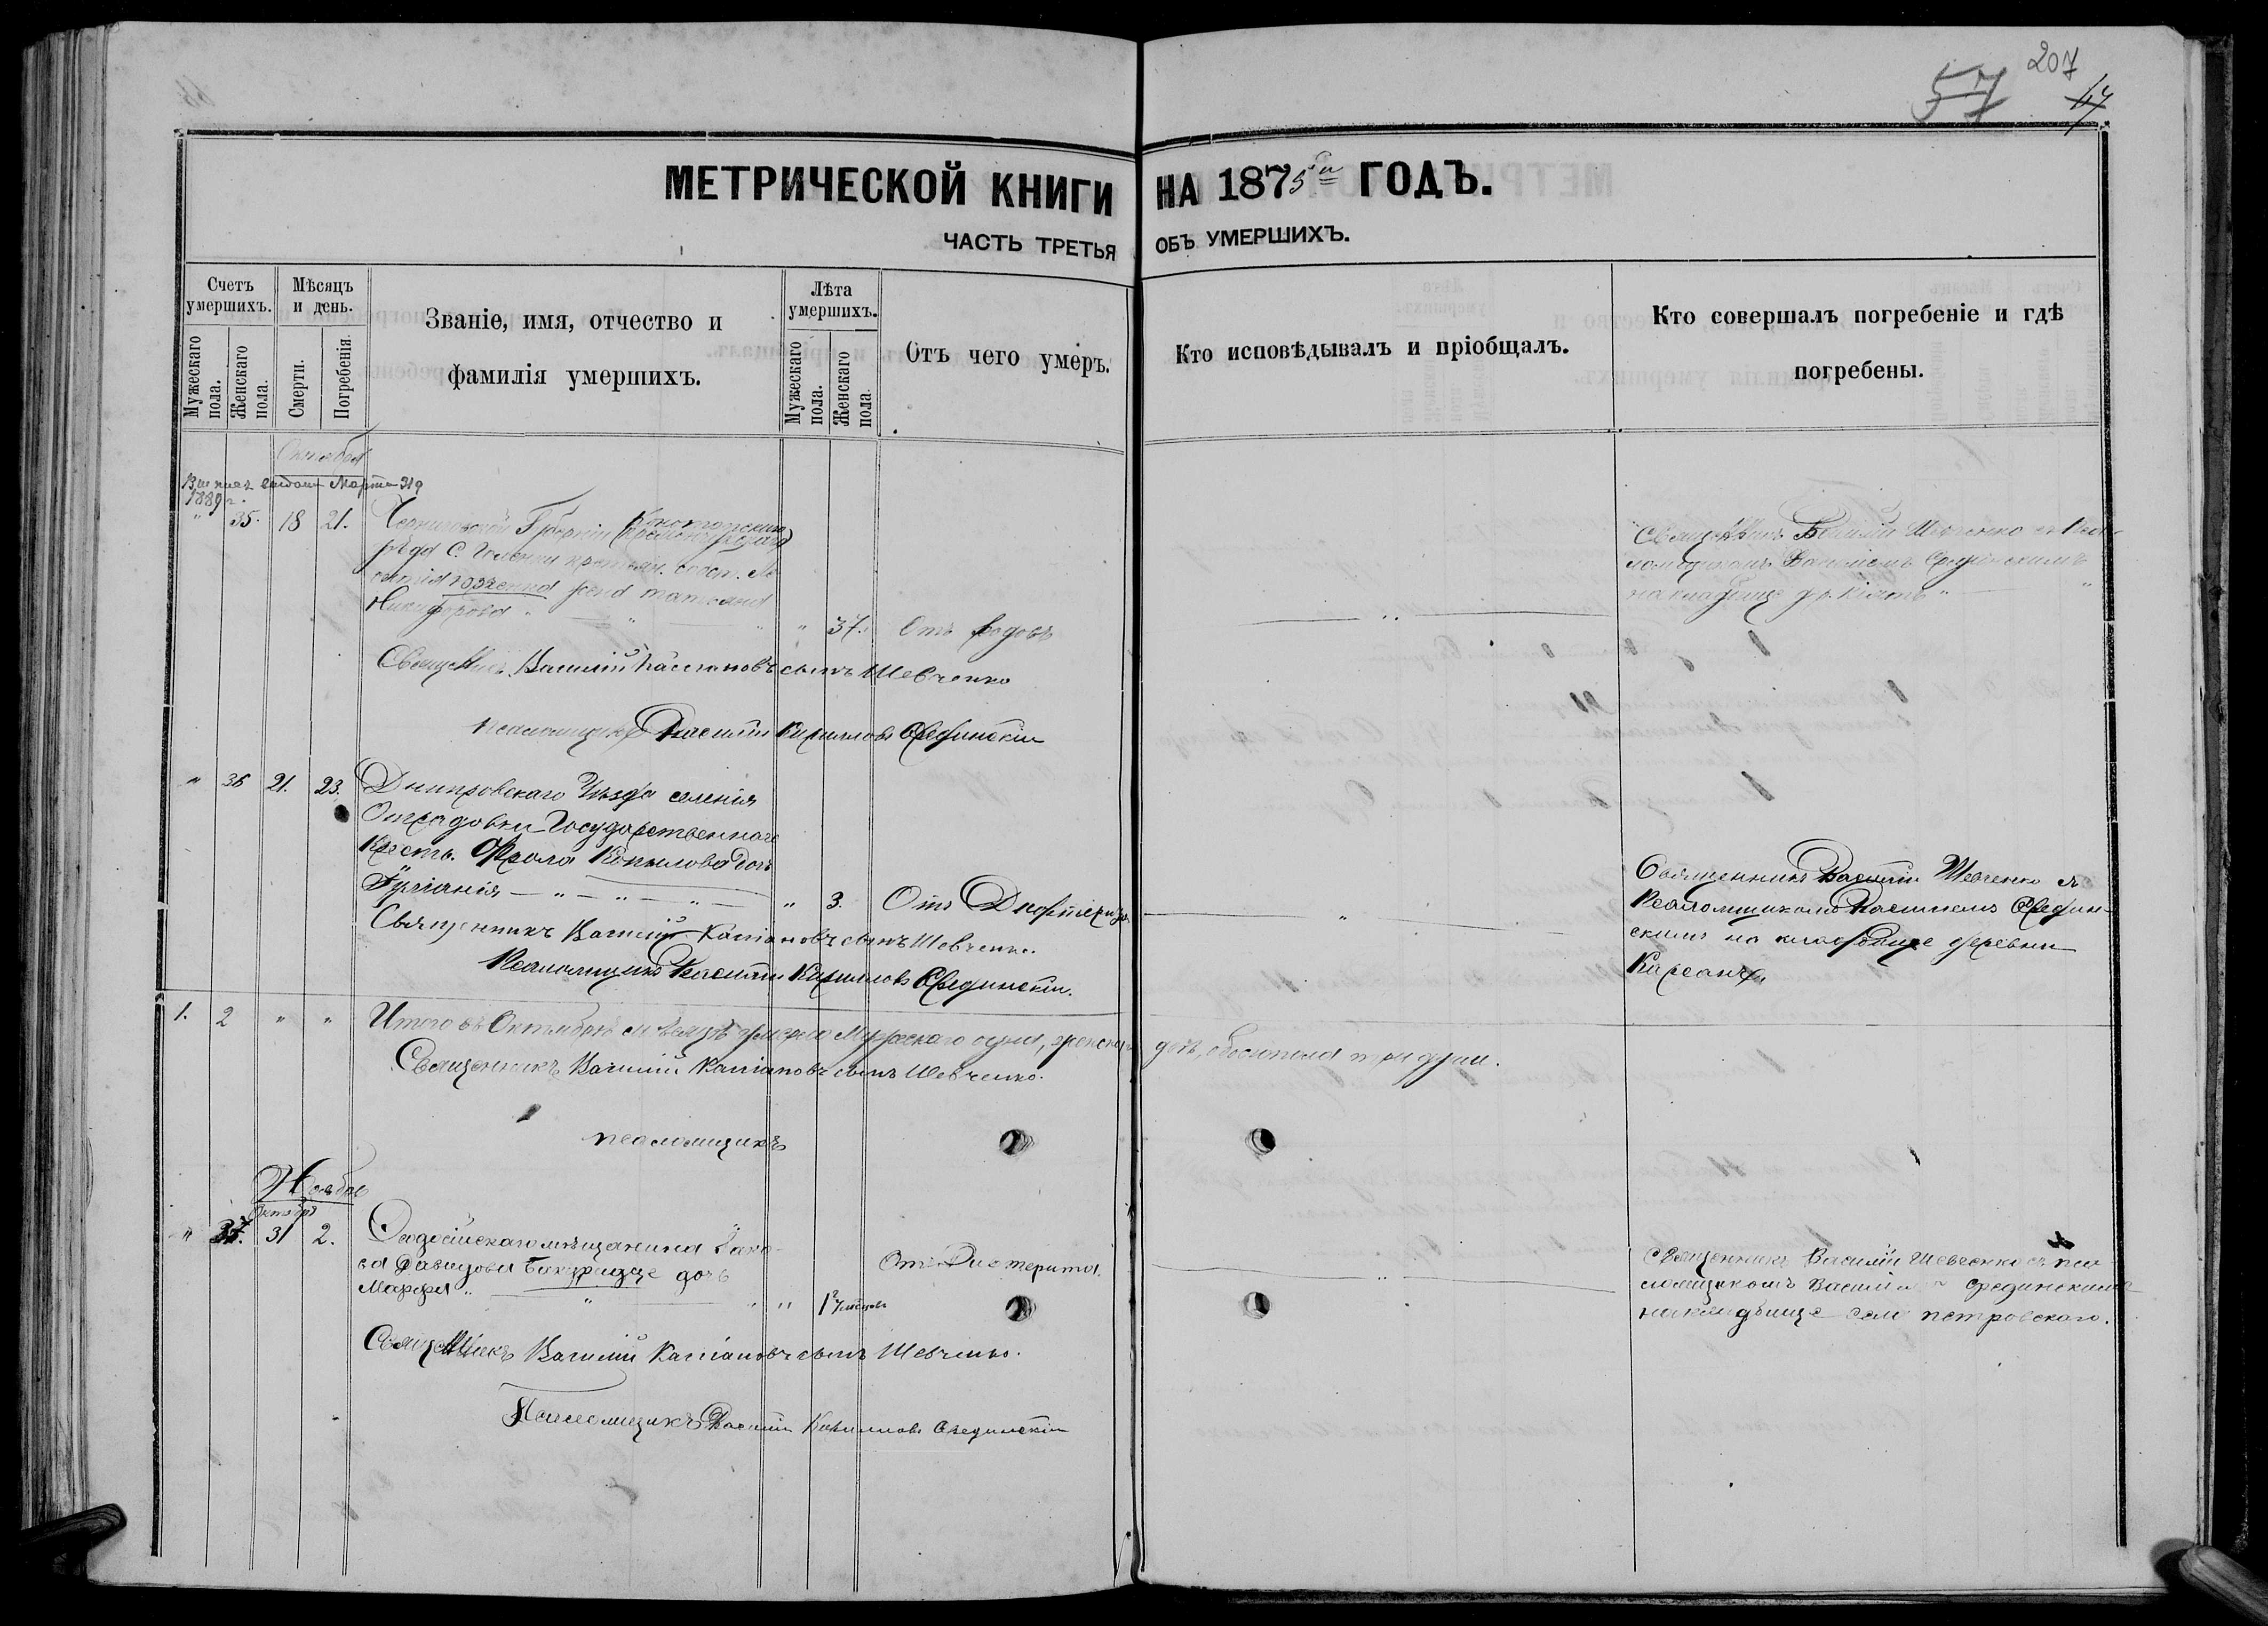 207
57
47
МЕТРИЧЕСКОЙ КНИГИ НА 1875 ГОДЪ.
ЧАСТЬ ТРЕТЬЯ ОБЪ УМЕРШИХЪ.
Счетъ умершихъ.
Мужескаго пола.
Женскаго пола.
Мѣсяцъ и день.
Смерти.
Погребенія.
Званіе, имя, отчество и
фамилія умершихъ.
Лѣта умершихъ.
Мужескаго пола.
Женскаго пола.
Отъ чего умеръ.
Кто исповѣдывалъ и пріобщалъ.
Кто совершалъ погребеніе и гдѣ
погребены.
Марта 31
1889 г.
" 35. 18 21. Черниговской Губерніи
Никифорова " " 37. Отъ родовъ
Василій Шевченко
на кладбище
Василій Кассіановъ сынъ Шевченко
Василій Кириловъ Срединскій
" 36 21. 23. Днипровскаго Уѣзда селенія
Отрадовки Государственнаго
Крестъ. Фрола Копылова дочь
" 3. Отъ Дифтерита
Священникъ Василій Шевченко съ
Псаломщикомъ Василіемъ Средин-
скимъ на кладбище деревни
Священникъ Василій Кассіановъ сынъ Шевченко.
Псаломщикъ Василій Кириловъ Срединскій.
1. 2 " " Итого въ Октябрѣ мѣсяцѣ умерло Мужескаго одна, женскаго двѣ, обоего пола три души.
Священникъ Василій Кассіановъ сынъ Шевченко.
псаломщикъ
Ноябрь
Октября
" 37. 31 2. мѣщанина Яко-
ва Давидова дочь
Марфа " " " 1 Отъ Дифтерита.
Священникъ Василій Шевченко съ пса
ломщикомъ Василіемъ Срединскимъ
на кладбище села Петровскаго.
Священникъ Василій Кассіановъ сынъ Шевченко.
Псаломщикъ Василій Кириловъ Срединскій